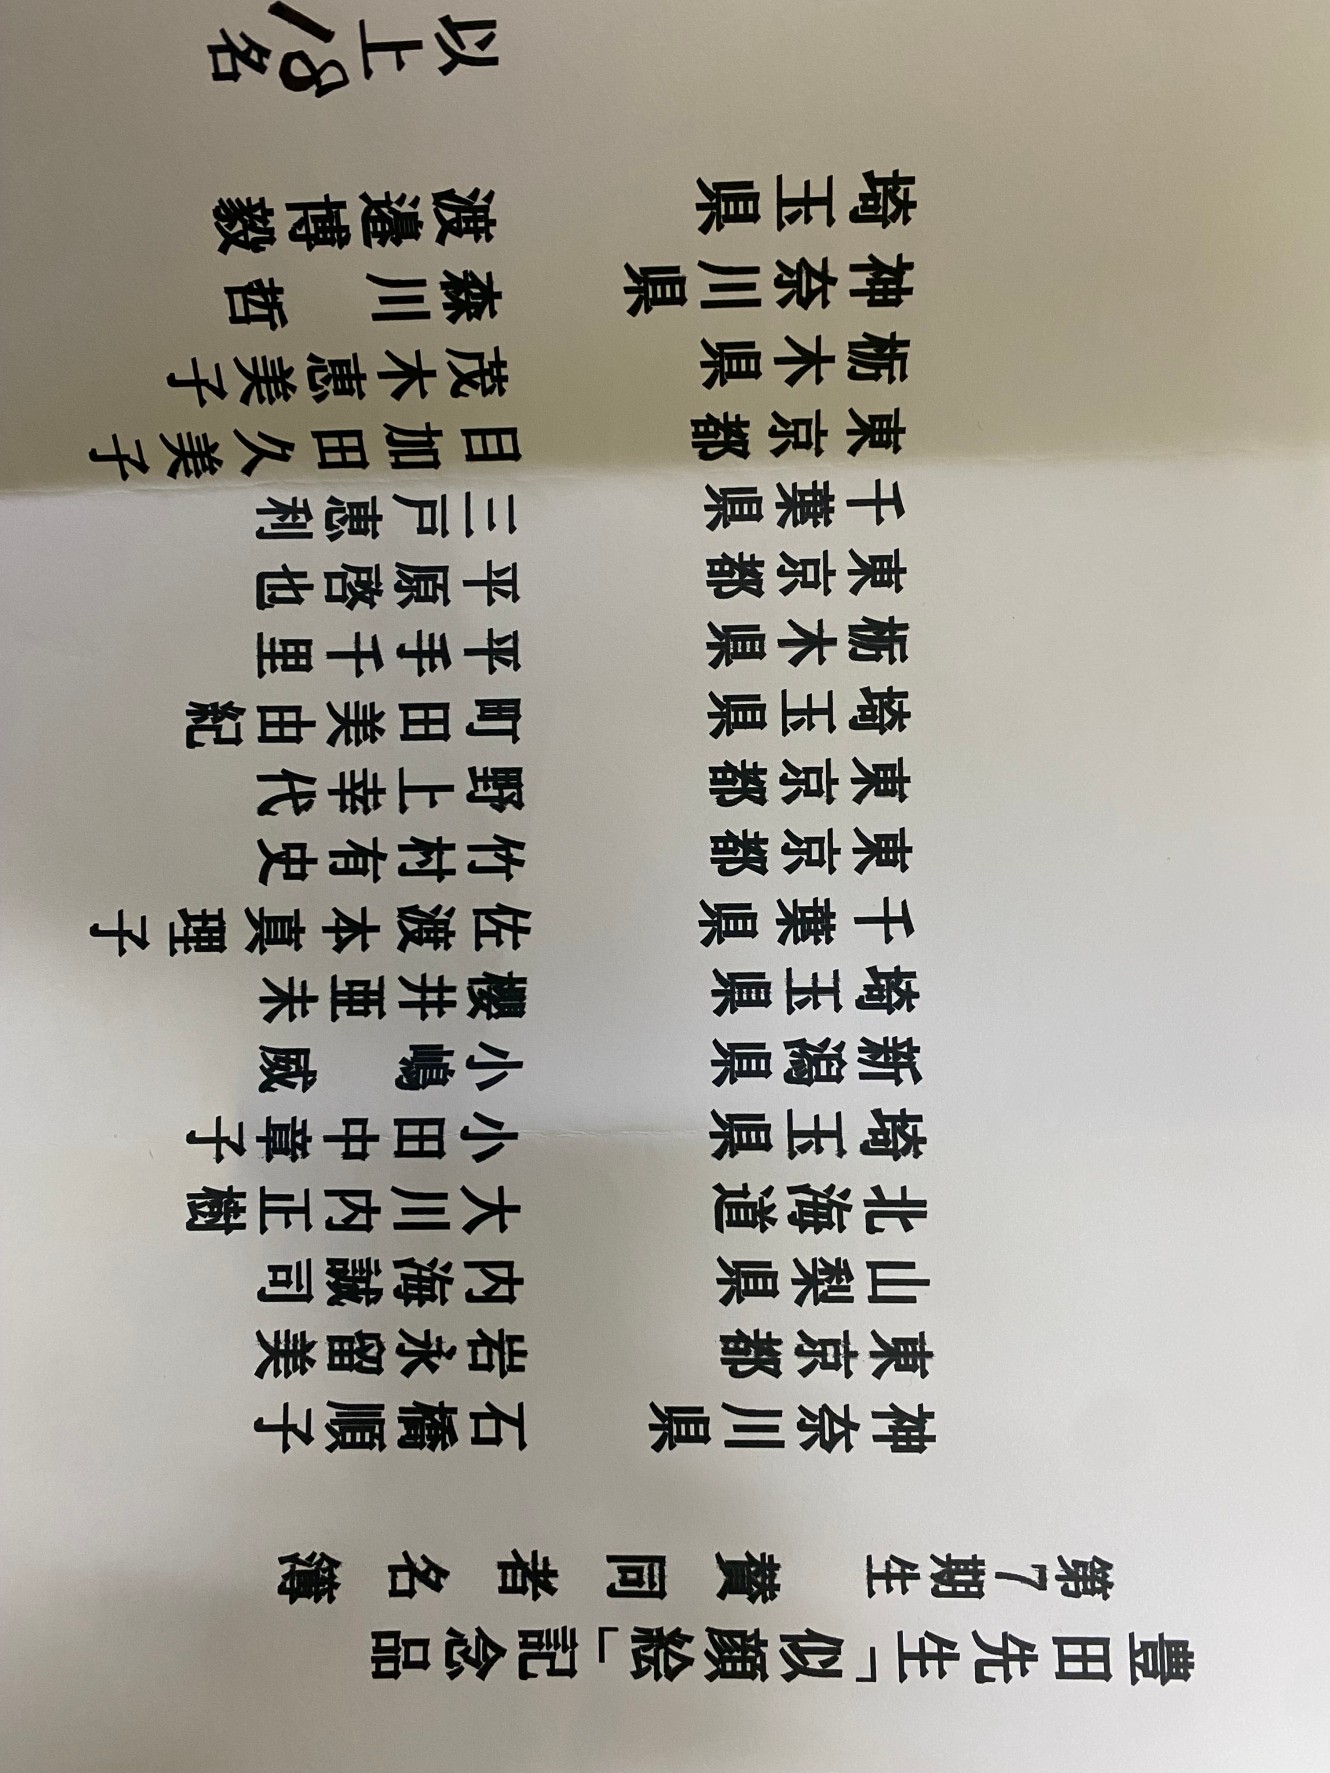 豊田先生「似顔絵」記念品
第7期生 賛同者名簿
神奈川県 石橋順子
東京都 岩永留美
山梨県 内海誠司
北海道 大川内正樹
埼玉県 小田中章子
新潟県 小嶋 威
埼玉県 櫻井亜未
千葉県 佐渡本真理子
東京都 竹村有史
東京都 野上幸代
埼玉県 町田美由紀
栃木県 平手千里
東京都 平原啓也
千葉県 三戸恵利
東京都 目加田久美子
栃木県 茂木恵美子
神奈川県 森川 哲
埼玉県 渡邉博毅
以上18名